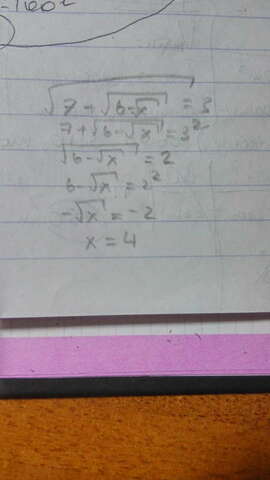 √(7 + √(6-√x)) = 3
7 + √(6-√x) = 3²
√(6-√x) = 2
6-√x = 2²
-√x = -2
x = 4